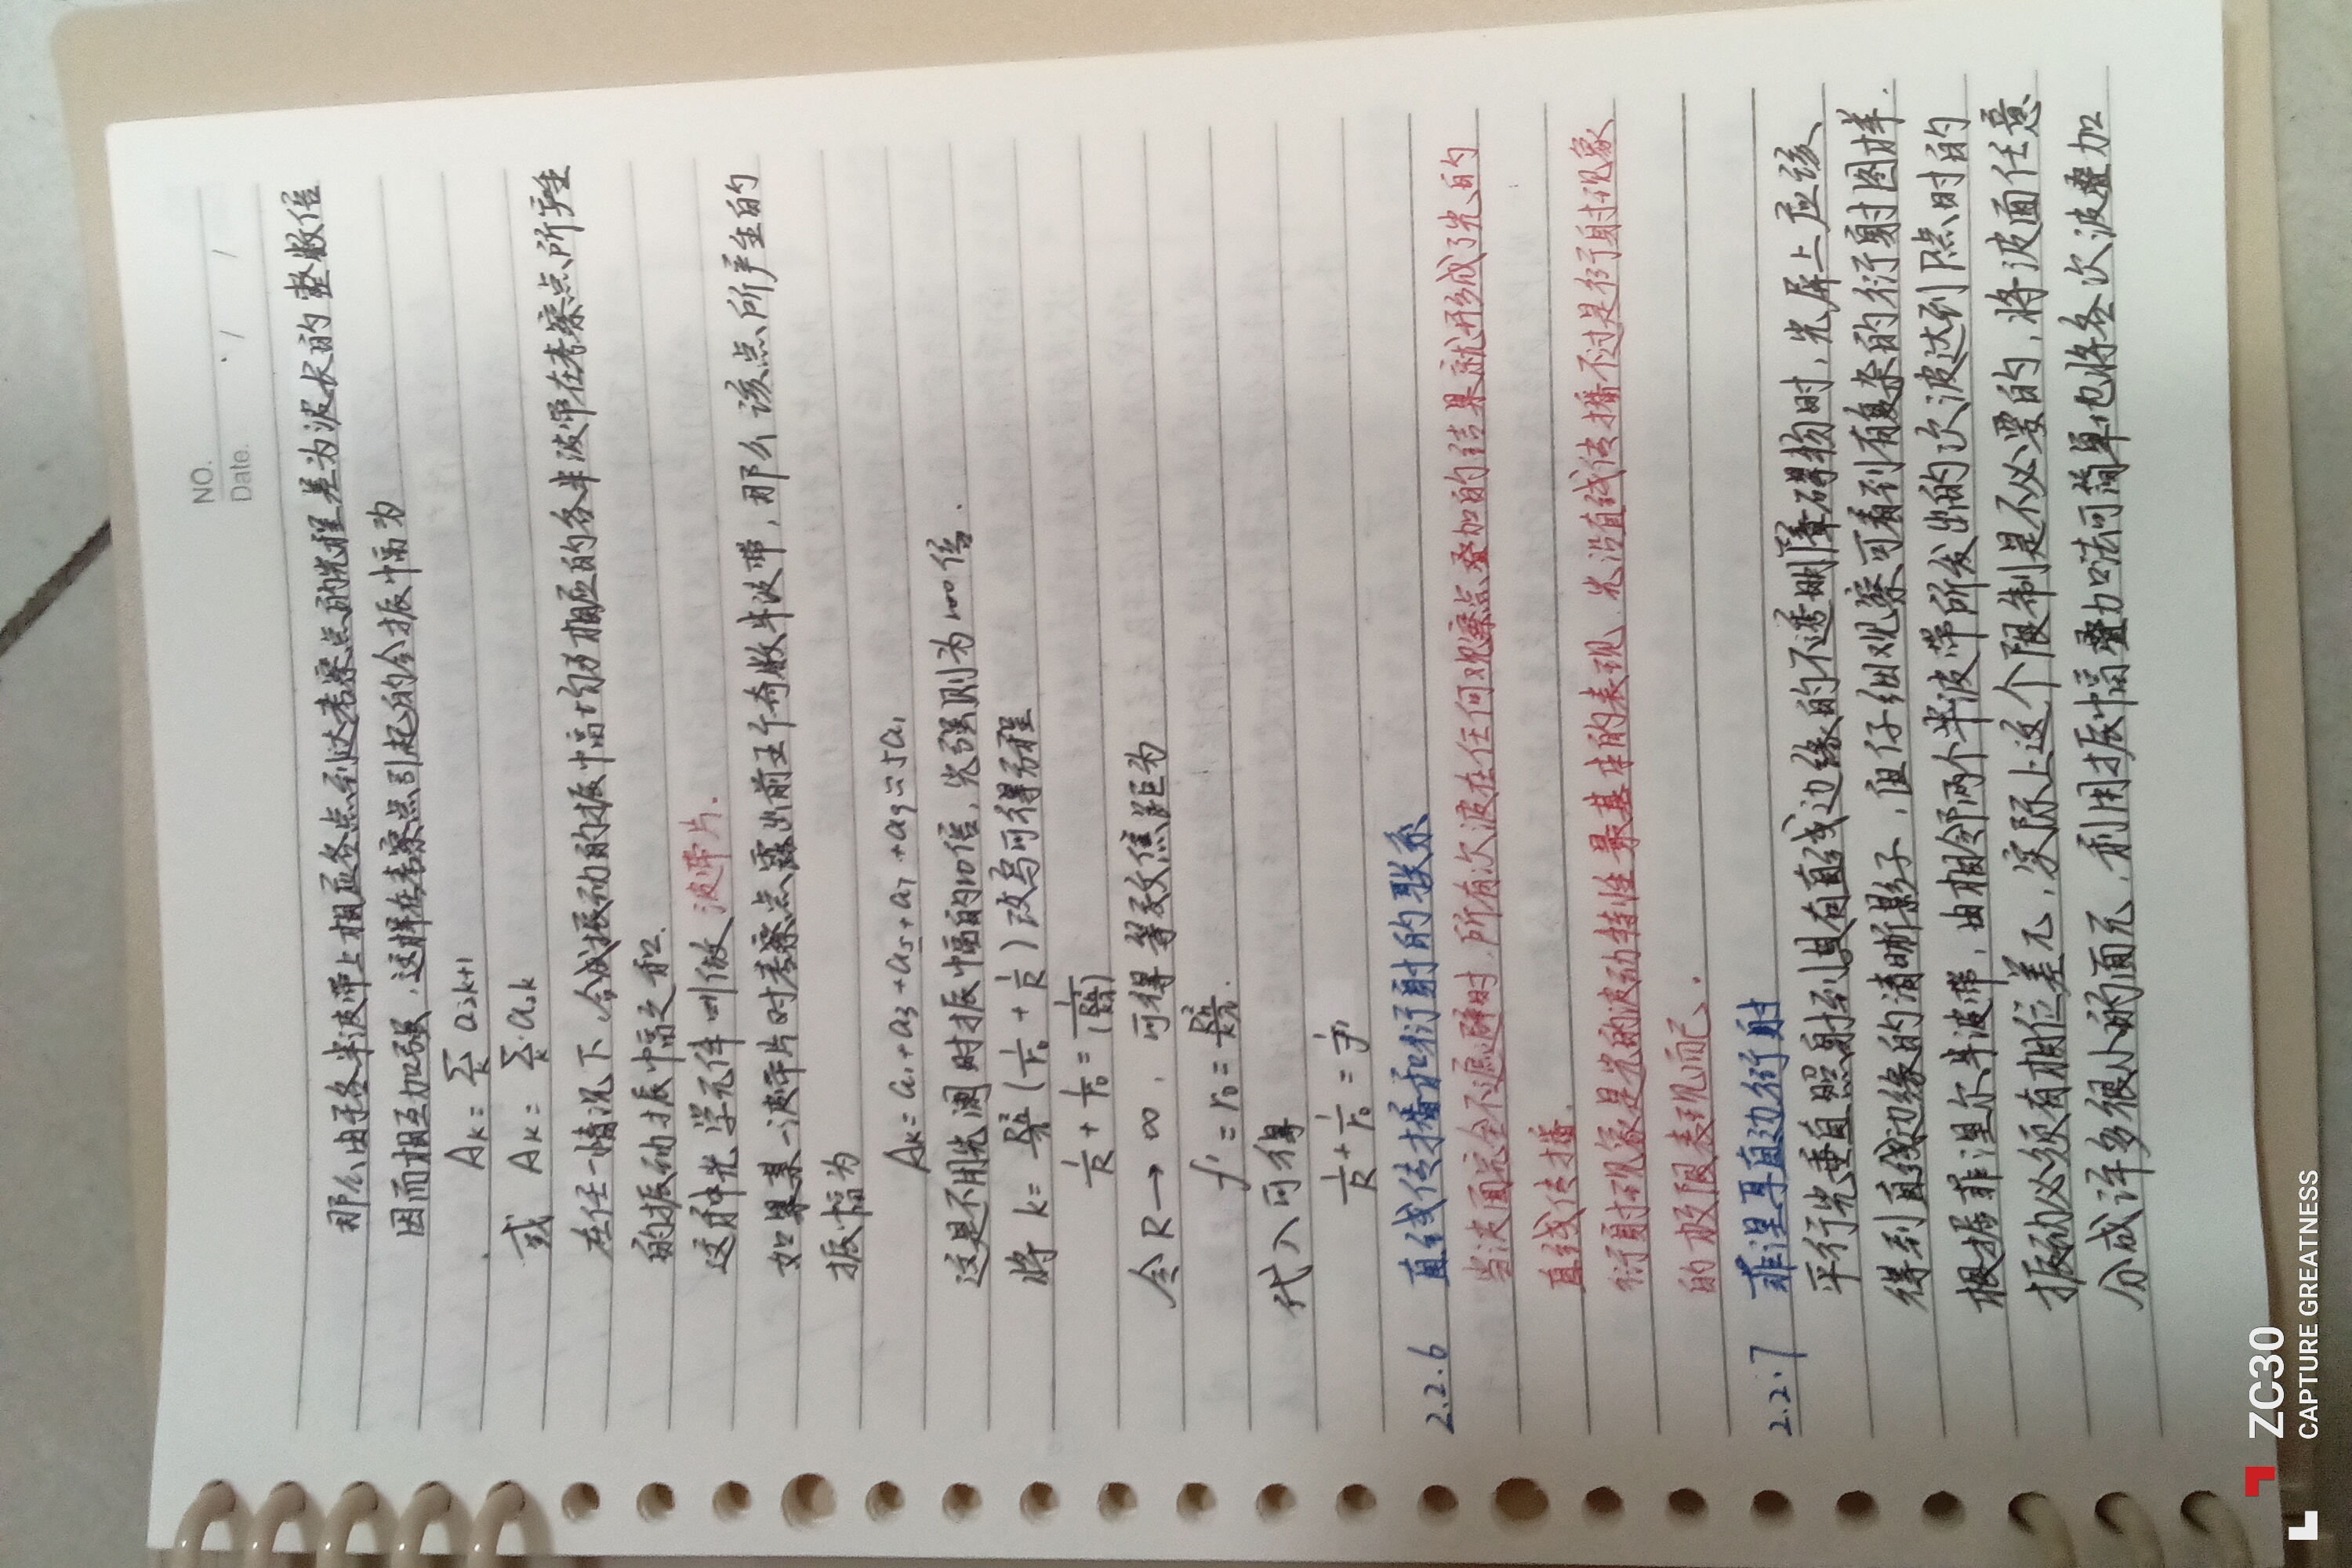 NO.
Date.
那么由于各半波带上相应各点到达考察点的光程差为波长的整数倍
因而相互加强，这样在考察点引起的合振幅为
Ak = Σk a2k+1
或 Ak = Σk a2k
在任一情况下，合成振动的振幅均为相应的各半波带在考察点所产生
的振动振幅之和.
这种光学元件叫做 波带片.
如果某一波带片对考察点露出前五个奇数半波带，那么该点所产生的
振幅为
Ak = a1 + a3 + a5 + a7 + a9 = 5a1
这是不用光阑时振幅的10倍，光强则为100倍.
将 k = Rh²/λ (1/r0 + 1/R) 改写可得方程
1/R + 1/r0 = 1/(Rh²/kλ)
令 R → ∞. 可得等效焦距为
f' = r0 = Rh²/kλ.
代入可得
1/R + 1/r0 = 1/f'
2.2.6 直线传播和衍射的联系
当波面完全不遮蔽时，所有次波在任何观察点叠加的结果就形成了光的
直线传播.
衍射现象是光的波动特性最基本的表现，光沿直线传播不过是衍射现象
的极限表现而已.
2.2.7 菲涅耳直边衍射
平行光垂直照射到具有直线边缘的不透明障碍物时，光屏上应该
得到直线边缘的清晰影子，但仔细观察可看到有复杂的衍射图样.
根据菲涅尔半波带，由相邻两个半波带所发出的次波达到P点时的
振动必须有相位差π，实际上这个限制是不必要的，将波面任意
分成许多很小的面元，利用振幅叠加法可简单地将各次波叠加
ZC30
CAPTURE GREATNESS